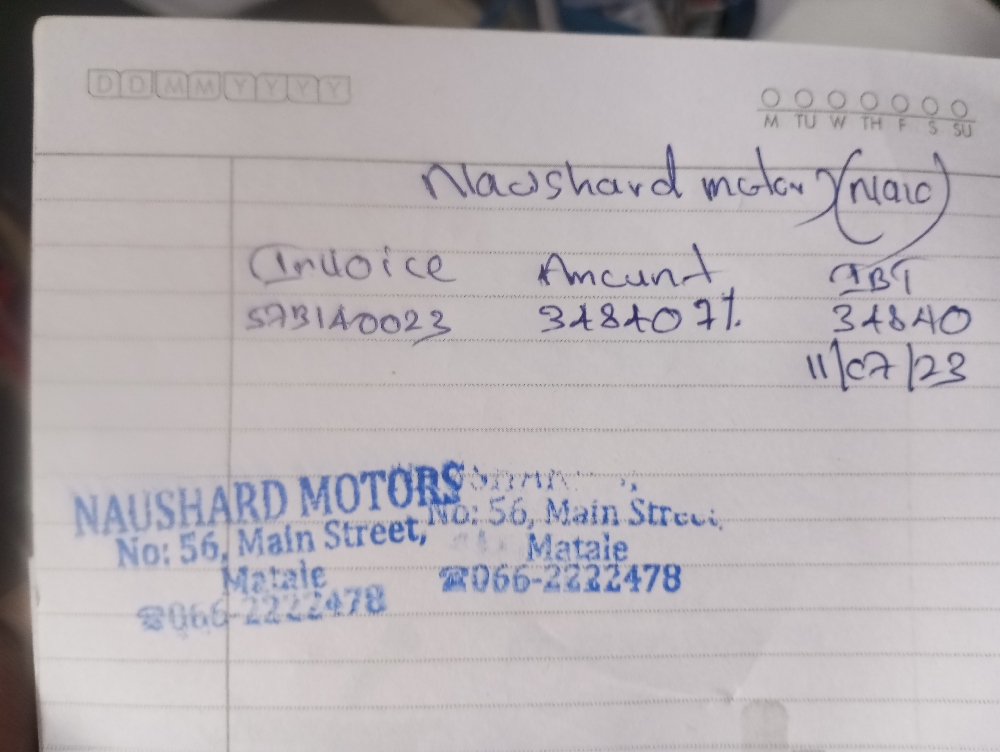 DDMMYYYY
M TU W TH F S SU
Naushard motor
Invoice Amount IBT
573140023 34840 7% 34840
11/07/23
NAUSHARD MOTORS
No: 56, Main Street,
Matale
☎066-2222478
No: 56, Main Street,
Matale
☎066-2222478